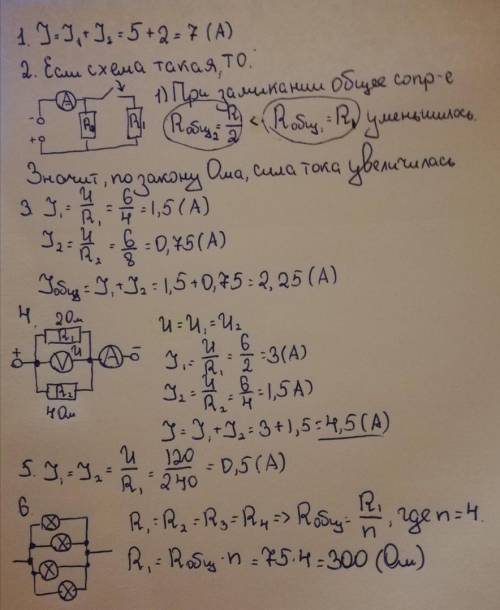 1. J=J₁+J₂=5+2=7 (A)
2. Если схема такая, то:
A
-
+
R₂
R₁
1) При замикании общее сопр-е
Rобщ₂=R/2 < Rобщ₁=R₁ уменьшилось.
Значит, по закону Ома, сила тока увеличилась
3. J₁=U/R₁=6/4=1,5(A)
J₂=U/R₂=6/8=0,75(A)
Jобщ=J₁+J₂=1,5+0,75=2,25(A)
4.
2Ом
R₁
+
V
U
A
-
R₂
4Ом
U=U₁=U₂
J₁=U/R₁=6/2=3(A)
J₂=U/R₂=6/4=1,5A)
J=J₁+J₂=3+1,5=4,5(A)
5. J₁=J₂=U/R₁=120/240=0,5(A)
6.
R₁=R₂=R₃=R₄=>Rобщ=R₁/n, где n=4.
R₁=Rобщ·n=75·4=300 (Ом)